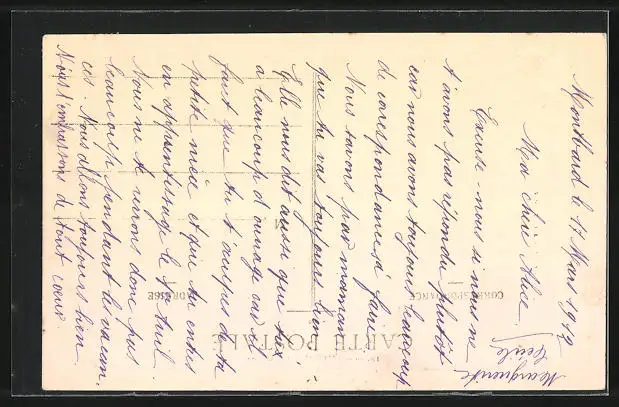 Montbard le 17 Mars 1912
Ma chère Alice
Excuse-nous si nous ne
t'avons pas répondu plutôt
car nous avons toujours beaucoup
de correspondance à faire
Nous savons par maman
que tu vas toujours bien
Elle nous dit aussi que tu
a beaucoup d'ouvrage car il
faut que tu t'occupes de ta
petite nièce et que tu entres
en apprentissage le avril.
Nous ne te verrons donc pas
beaucoup pendant les vacan
ces. Nous allons toujours bien
Nous t'embrassons de tout coeur
Marguerite
Cécile
CARTE POSTALE
CORRESPONDANCE
ADRESSE